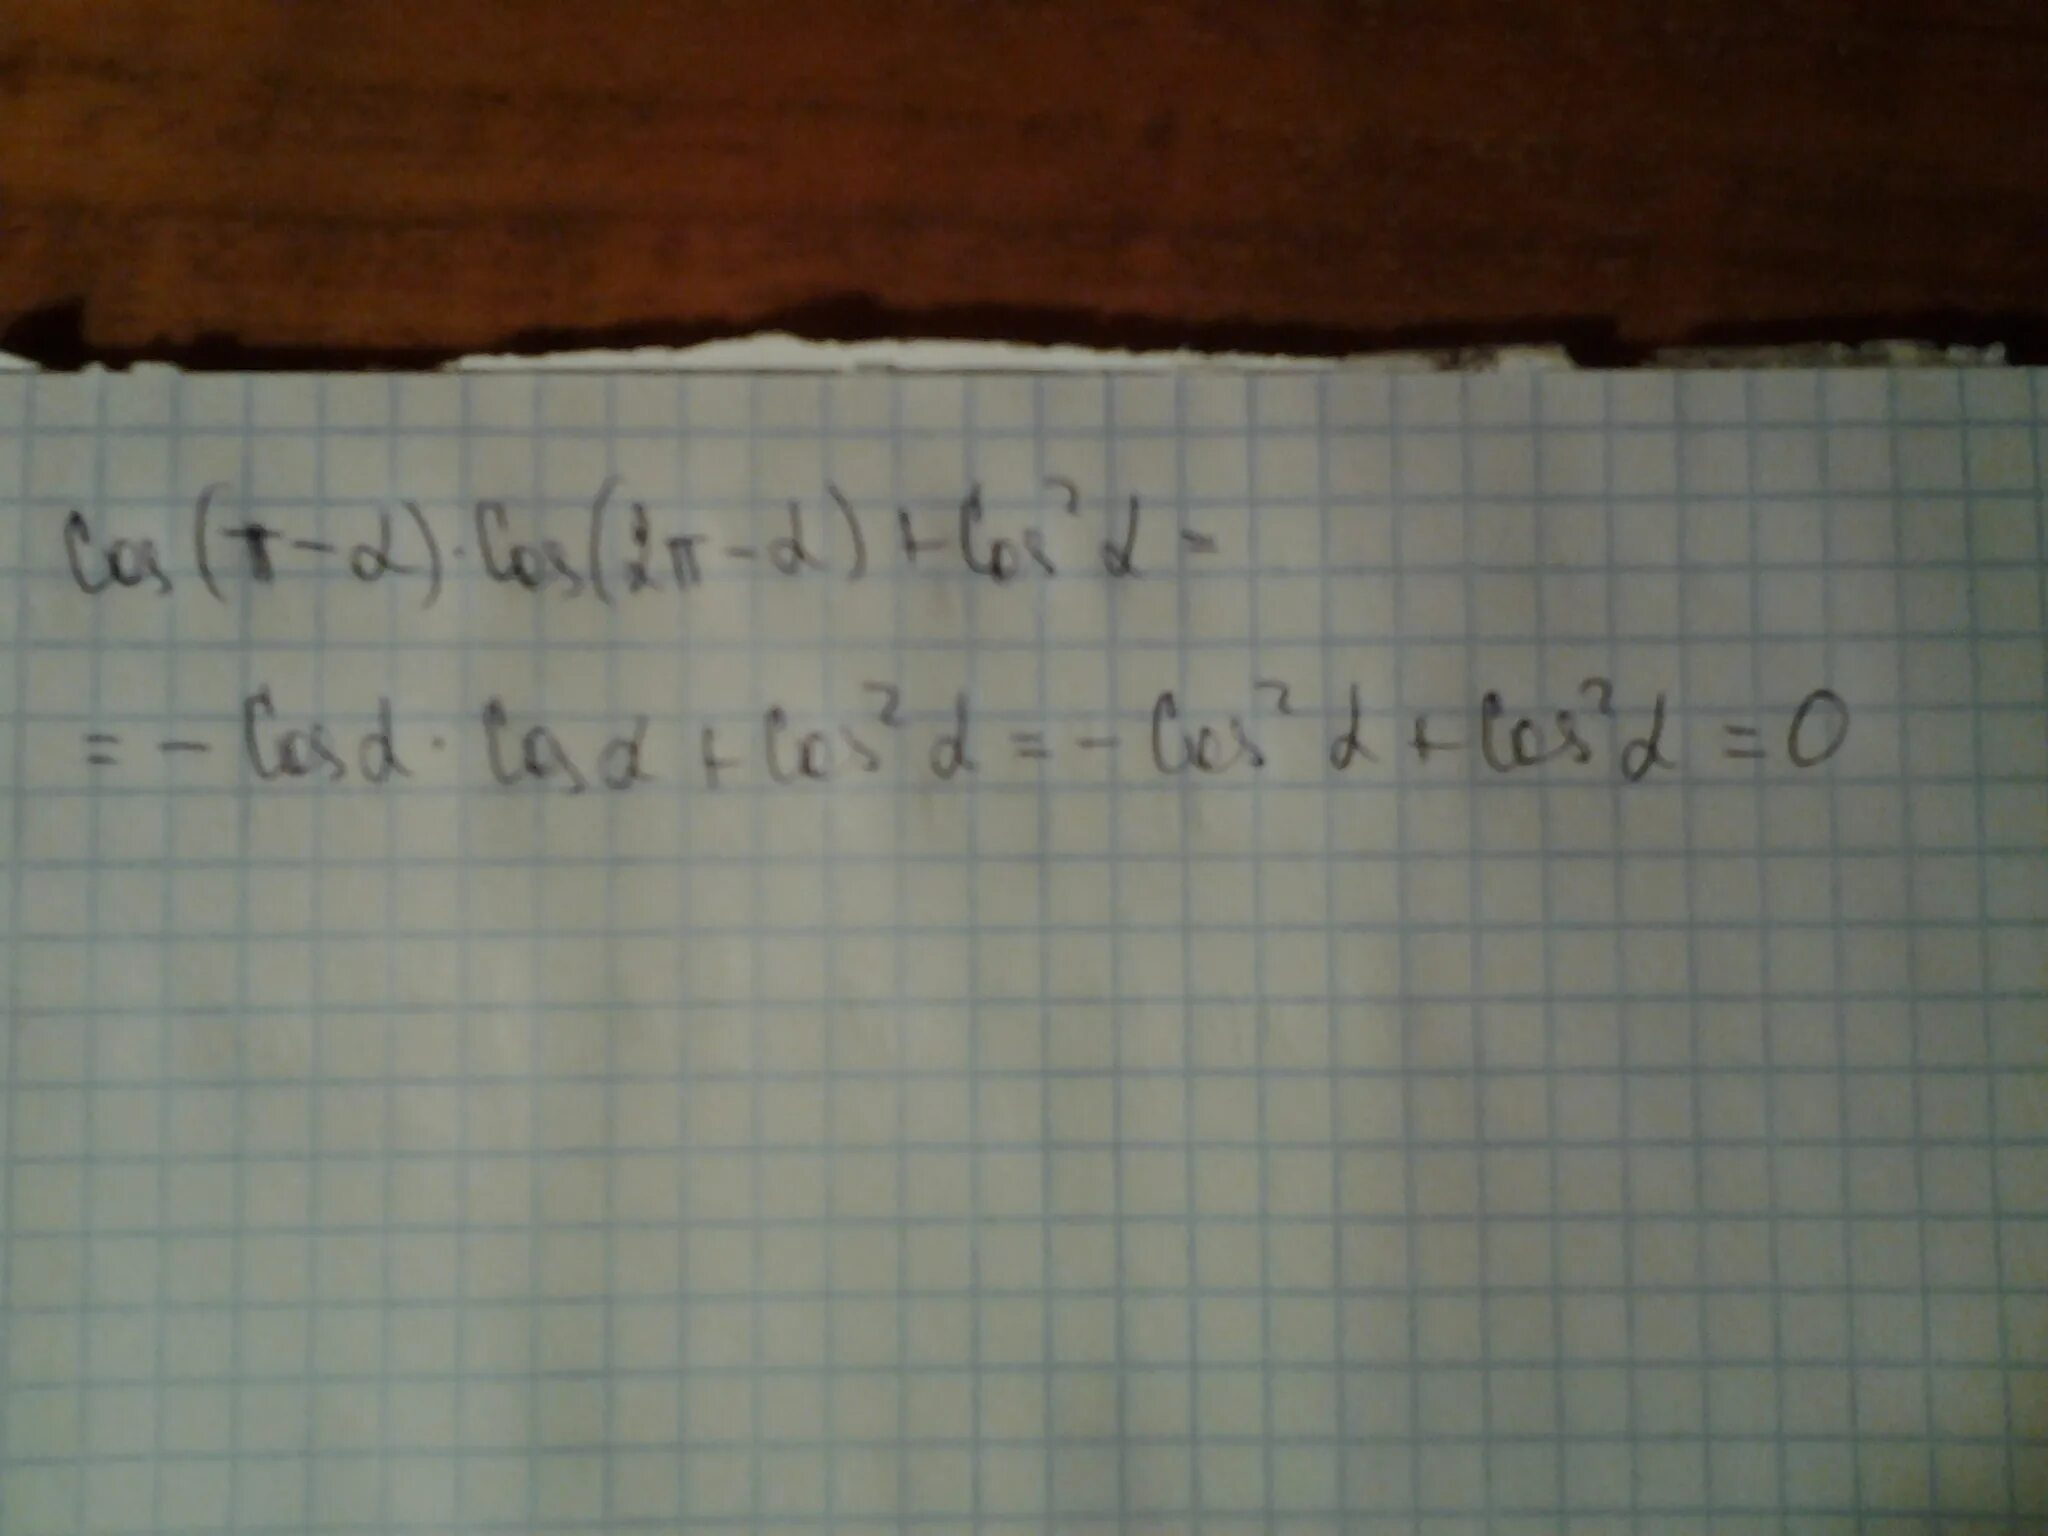 Cos(π-α)·Cos(2π-α)+Cos²α=
=-Cosα·Cosα+Cos²α=-Cos²α+Cos²α=0